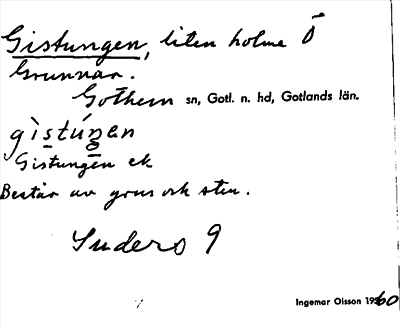 Gistungen, liten holme Ö
Grunnar.
Gothem sn, Gotl. n. hd, Gotlands län.
gìstúŋen
Gistungen ek
Består av grus och sten.
Suders 9
Ingemar Olsson 1960